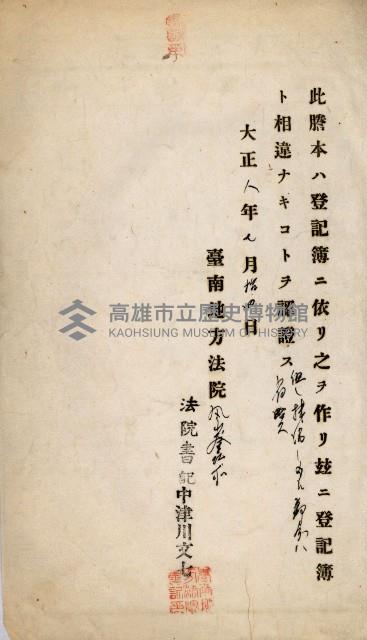 此謄本ハ登記簿ニ依リ之ヲ作リ玆ニ登記簿
ト相違ナキコトヲ認證ス
但シ抹消シタル部分ハ
省略ス
大正八年七月拾四日
臺南地方法院鳳山出張所
法院書記中津川文七
高雄市立歷史博物館
KAOHSIUNG MUSEUM OF HISTORY